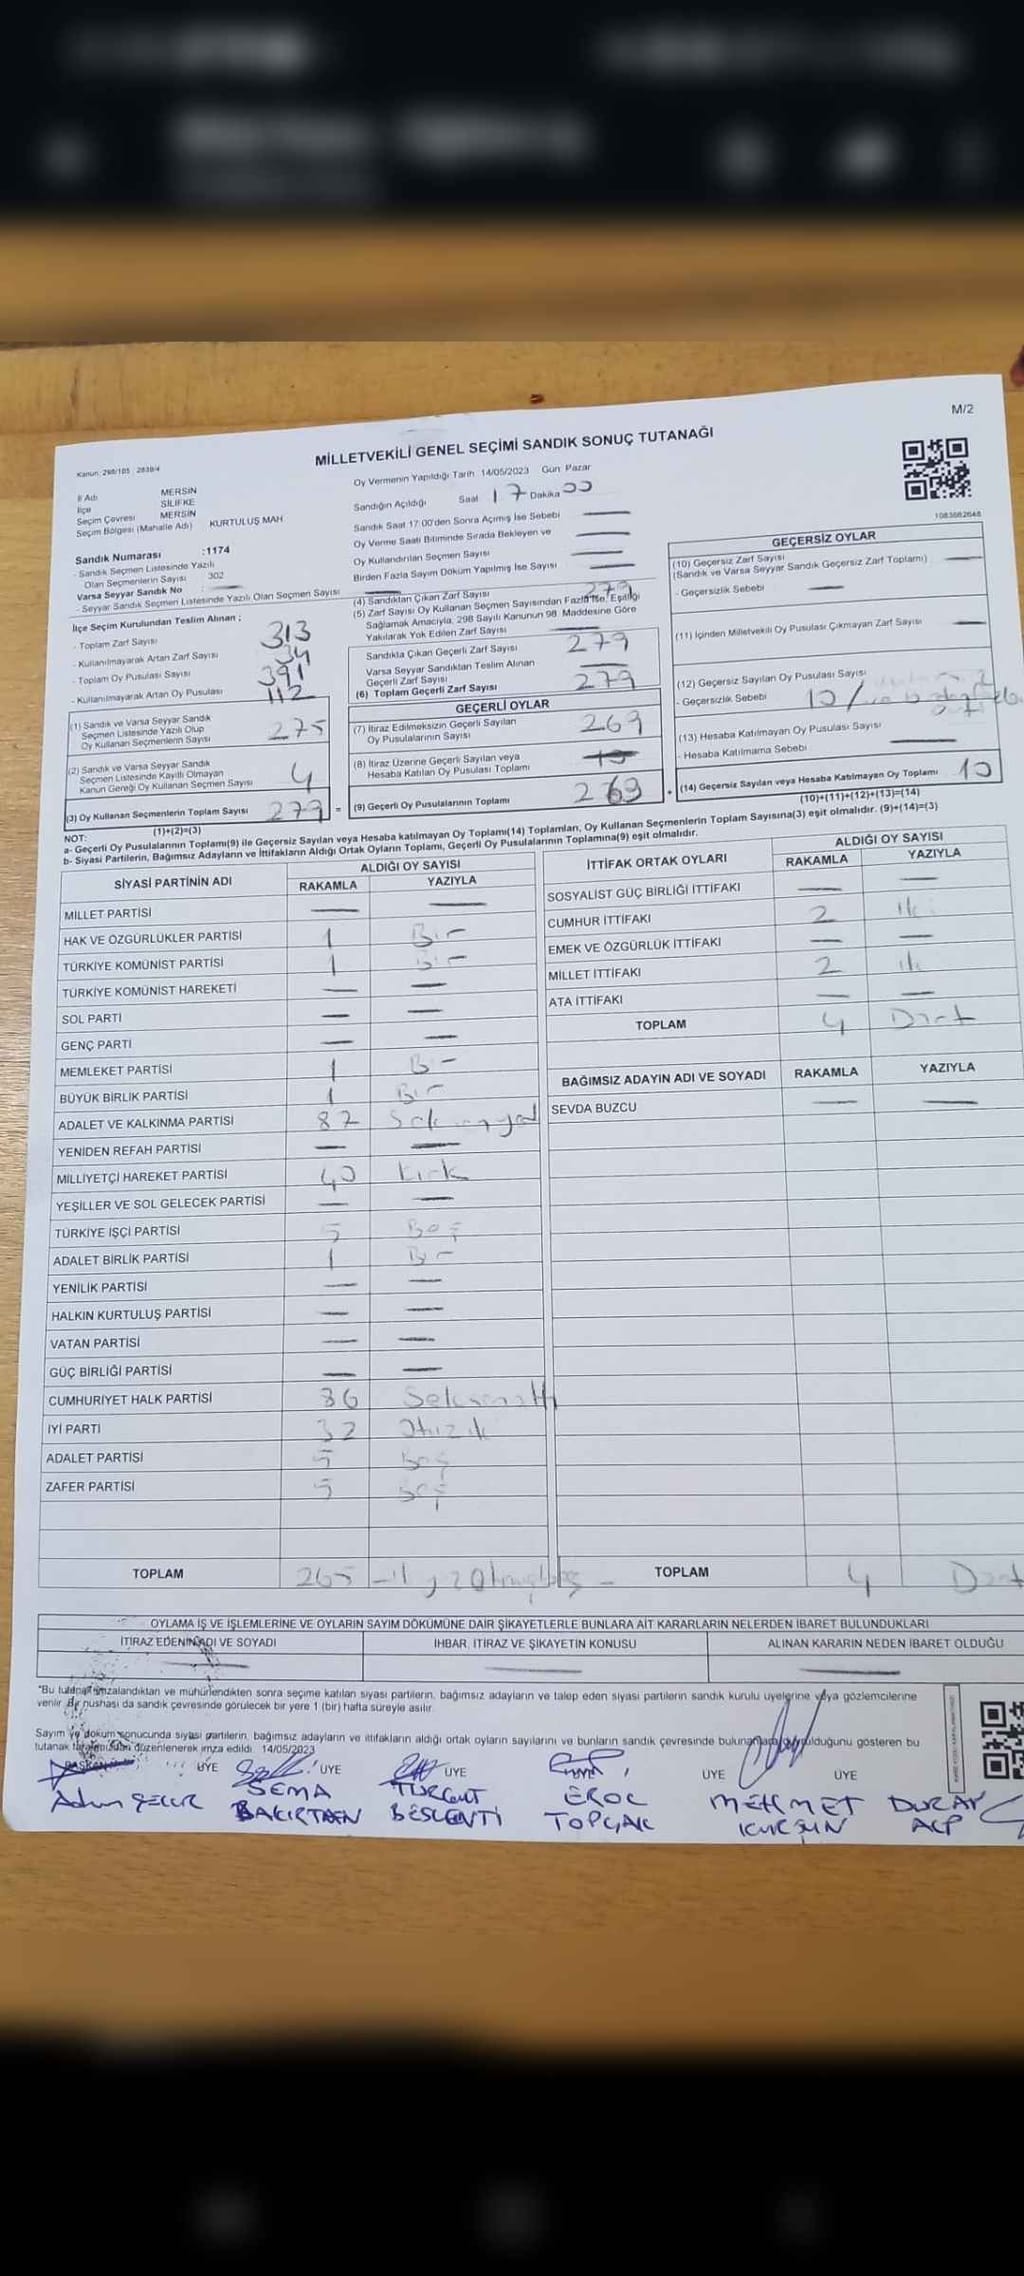 M/2
Kanun: 298/105 2839/4
MİLLETVEKİLİ GENEL SEÇİMİ SANDIK SONUÇ TUTANAĞI
İl Adı MERSİN
İlçe SİLİFKE
Seçim Çevresi MERSİN
Seçim Bölgesi (Mahalle Adı) KURTULUŞ MAH
Sandık Numarası :1174
- Sandık Seçmen Listesinde Yazılı
Olan Seçmenlerin Sayısı 302
Varsa Seyyar Sandık No :
- Seyyar Sandık Seçmen Listesinde Yazılı Olan Seçmen Sayısı
İlçe Seçim Kurulundan Teslim Alınan ;
- Toplam Zarf Sayısı 313
- Kullanılmayarak Artan Zarf Sayısı 34
- Toplam Oy Pusulası Sayısı 391
- Kullanılmayarak Artan Oy Pusulası 112
(1) Sandık ve Varsa Seyyar Sandık
Seçmen Listesinde Yazılı Olup
Oy Kullanan Seçmenlerin Sayısı 275
(2) Sandık ve Varsa Seyyar Sandık
Seçmen Listesinde Kayıtlı Olmayan
Kanun Gereği Oy Kullanan Seçmen Sayısı 4
(3) Oy Kullanan Seçmenlerin Toplam Sayısı 279 =
(1)+(2)=(3)
Oy Vermenin Yapıldığı Tarih 14/05/2023 Gün Pazar
Sandığın Açıldığı Saat 17 Dakika 00
Sandık Saat 17:00'den Sonra Açılmış İse Sebebi
Oy Verme Saati Bitiminde Sırada Bekleyen ve
Oy Kullandırılan Seçmen Sayısı
Birden Fazla Sayım Döküm Yapılmış İse Sayısı
(4) Sandıktan Çıkan Zarf Sayısı 279
(5) Zarf Sayısı Oy Kullanan Seçmen Sayısından Fazla İse, Eşitliği
Sağlamak Amacıyla, 298 Sayılı Kanunun 98. Maddesine Göre
Yakılarak Yok Edilen Zarf Sayısı
Sandıkla Çıkan Geçerli Zarf Sayısı 279
Varsa Seyyar Sandıktan Teslim Alınan
Geçerli Zarf Sayısı
(6) Toplam Geçerli Zarf Sayısı 279
GEÇERLİ OYLAR
(7) İtiraz Edilmeksizin Geçerli Sayılan
Oy Pusulalarının Sayısı 269
(8) İtiraz Üzerine Geçerli Sayılan veya
Hesaba Katılan Oy Pusulası Toplamı
(9) Geçerli Oy Pusulalarının Toplamı 269 +
1083662648
GEÇERSİZ OYLAR
(10) Geçersiz Zarf Sayısı
(Sandık ve Varsa Seyyar Sandık Geçersiz Zarf Toplamı)
- Geçersizlik Sebebi
(11) İçinden Milletvekili Oy Pusulası Çıkmayan Zarf Sayısı
(12) Geçersiz Sayılan Oy Pusulası Sayısı
- Geçersizlik Sebebi 10 /
(13) Hesaba Katılmayan Oy Pusulası Sayısı
- Hesaba Katılmama Sebebi
(14) Geçersiz Sayılan veya Hesaba Katılmayan Oy Toplamı 10
(10)+(11)+(12)+(13)=(14)
NOT:
a- Geçerli Oy Pusulalarının Toplamı(9) ile Geçersiz Sayılan veya Hesaba katılmayan Oy Toplamı(14) Toplamları, Oy Kullanan Seçmenlerin Toplam Sayısına(3) eşit olmalıdır. (9)+(14)=(3)
b- Siyasi Partilerin, Bağımsız Adayların ve İttifakların Aldığı Ortak Oyların Toplamı, Geçerli Oy Pusulalarının Toplamına(9) eşit olmalıdır.
SİYASİ PARTİNİN ADI ALDIĞI OY SAYISI
RAKAMLA YAZIYLA
MİLLET PARTİSİ
HAK VE ÖZGÜRLÜKLER PARTİSİ 1 Bir
TÜRKİYE KOMÜNİST PARTİSİ 1 Bir
TÜRKİYE KOMÜNİST HAREKETİ
SOL PARTİ
GENÇ PARTİ
MEMLEKET PARTİSİ 1 Bir
BÜYÜK BİRLİK PARTİSİ 1 Bir
ADALET VE KALKINMA PARTİSİ 87
YENİDEN REFAH PARTİSİ
MİLLİYETÇİ HAREKET PARTİSİ 40 Kırk
YEŞİLLER VE SOL GELECEK PARTİSİ
TÜRKİYE İŞÇİ PARTİSİ 5 Beş
ADALET BİRLİK PARTİSİ 1 Bir
YENİLİK PARTİSİ
HALKIN KURTULUŞ PARTİSİ
VATAN PARTİSİ
GÜÇ BİRLİĞİ PARTİSİ
CUMHURİYET HALK PARTİSİ 86 Seksenaltı
İYİ PARTİ 32 Otuziki
ADALET PARTİSİ 5 Beş
ZAFER PARTİSİ 5 Beş
TOPLAM 265
İTTİFAK ORTAK OYLARI ALDIĞI OY SAYISI
RAKAMLA YAZIYLA
SOSYALİST GÜÇ BİRLİĞİ İTTİFAKI
CUMHUR İTTİFAKI 2 iki
EMEK VE ÖZGÜRLÜK İTTİFAKI
MİLLET İTTİFAKI 2 iki
ATA İTTİFAKI
TOPLAM 4 Dört
BAĞIMSIZ ADAYIN ADI VE SOYADI RAKAMLA YAZIYLA
SEVDA BUZCU
TOPLAM 4 Dört
OYLAMA İŞ VE İŞLEMLERİNE VE OYLARIN SAYIM DÖKÜMÜNE DAİR ŞİKAYETLERLE BUNLARA AİT KARARLARIN NELERDEN İBARET BULUNDUKLARI
İTİRAZ EDENİN ADI VE SOYADI İHBAR, İTİRAZ VE ŞİKAYETİN KONUSU ALINAN KARARIN NEDEN İBARET OLDUĞU
"Bu tutanak imzalandıktan ve mühürlendikten sonra seçime katılan siyasi partilerin, bağımsız adayların ve talep eden siyasi partilerin sandık kurulu üyelerine veya gözlemcilerine
verilir. Bir nushası da sandık çevresinde görülecek bir yere 1 (bir) hafta süreyle asılır.
Sayım ve döküm sonucunda siyasi partilerin, bağımsız adayların ve ittifakların aldığı ortak oyların sayılarını ve bunların sandık çevresinde bulunanlara duyurulduğunu gösteren bu
tutanak tarafımızdan düzenlenerek imza edildi. 14/05/2023
BAŞKAN ÜYE ÜYE ÜYE ÜYE ÜYE
SEMA BAKIRTAN TURGUT BESLENTİ EROL TOPÇAK MEHMET KURŞUN DURAY ALP